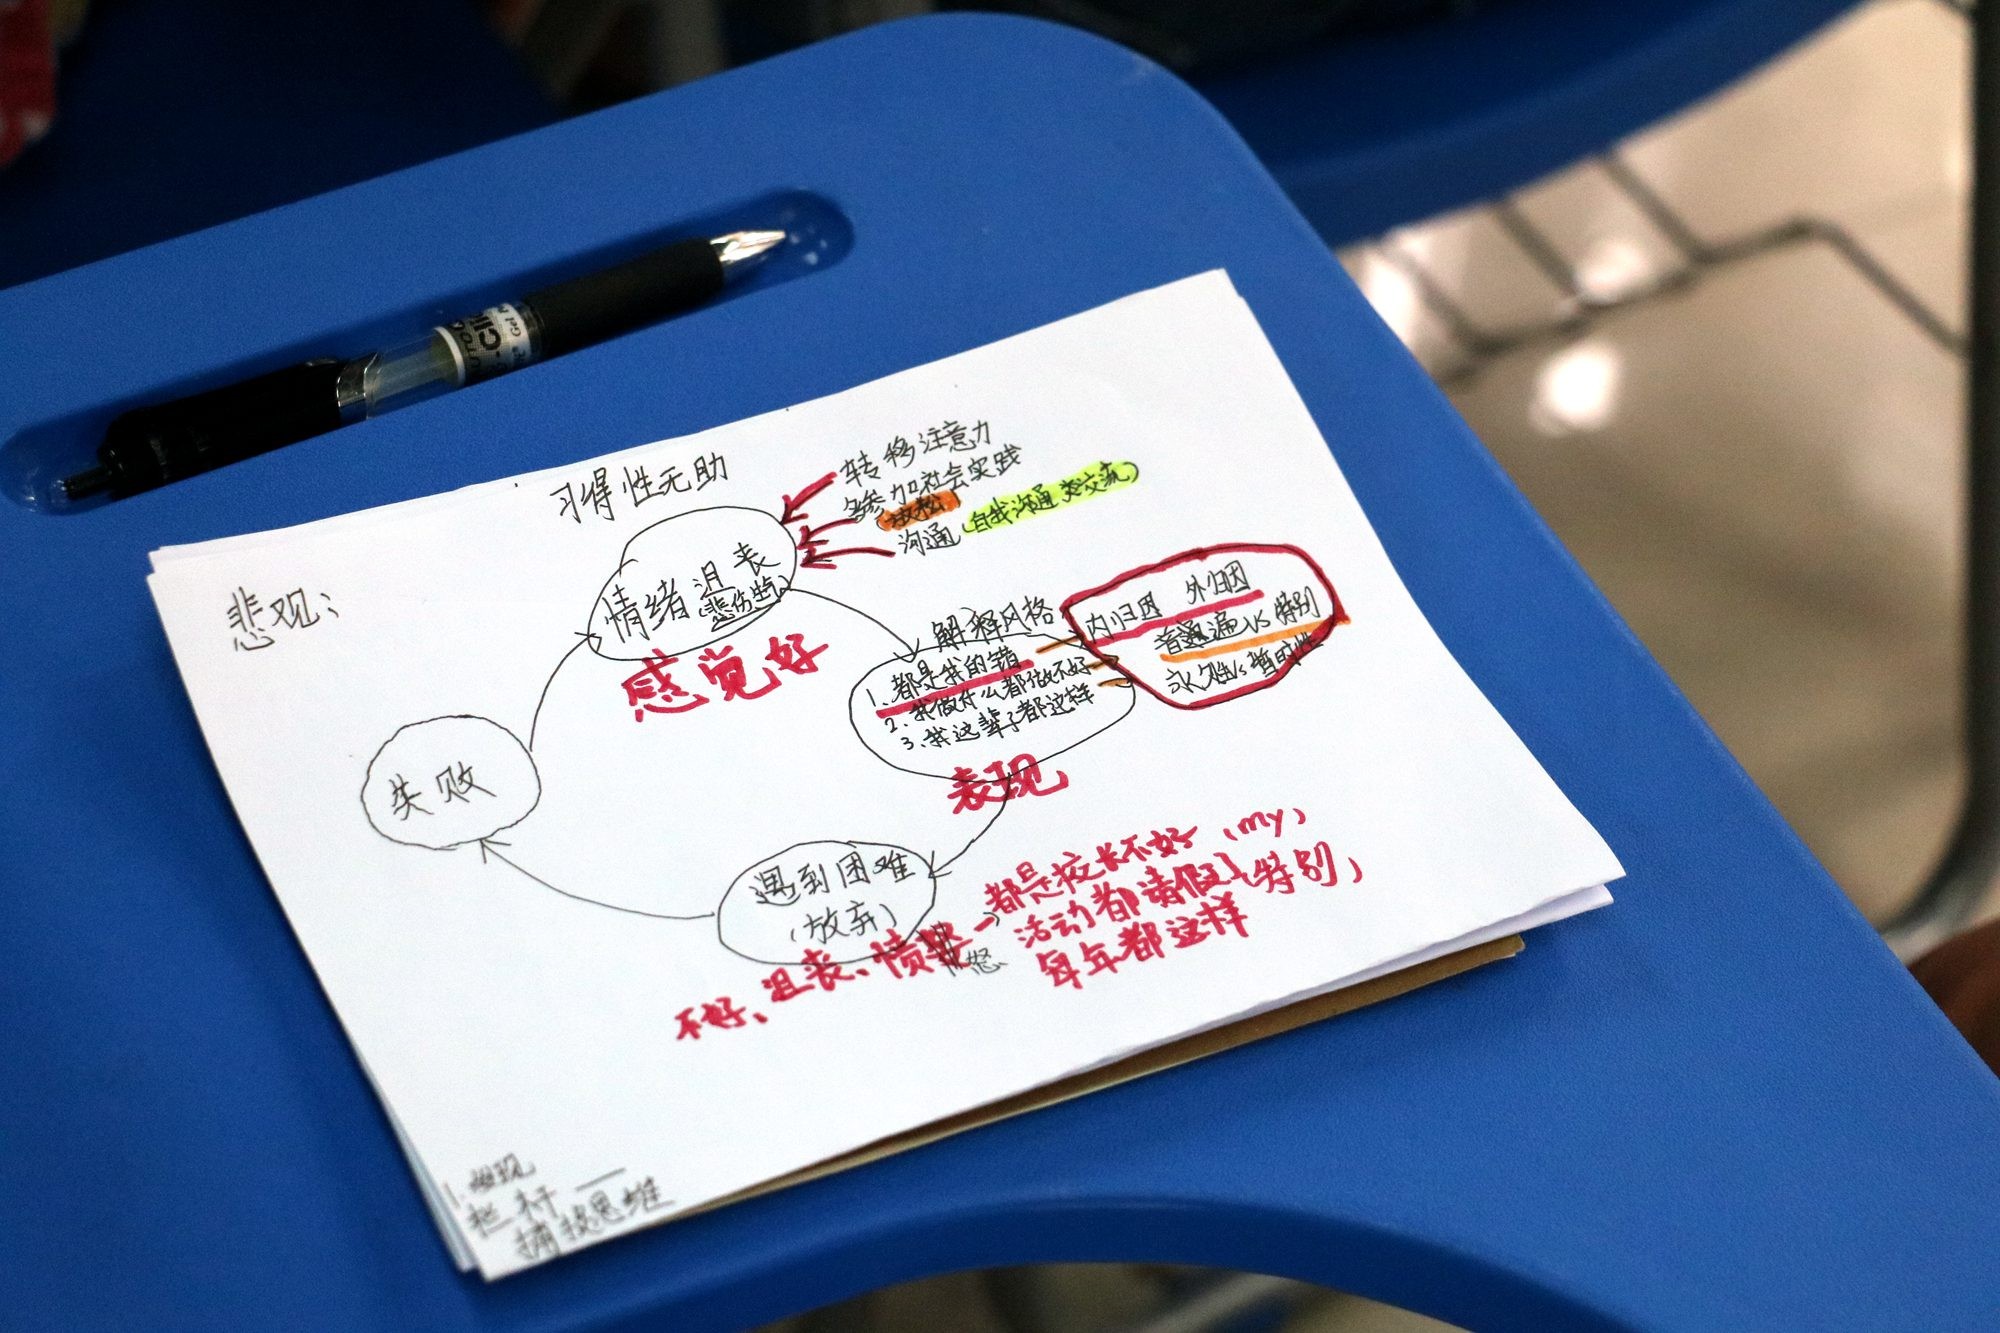 习得性无助
悲观:
转移注意力
参加社会实践
放松
沟通(自我沟通 类交流)
情绪沮丧
(悲伤生气)
感觉好
解释风格
1、都是我的错
2、我做什么都做不好
3、我这辈子都这样
内归因 外归因
普通遍 VS 特别
永久性VS暂时性
表现
失败
遇到困难
(放弃)
不好、沮丧、愤怒
都是校长不好 (my)
活动都请假 (特别)
每年都这样
1.
栏杆
捕捉思维
Gel